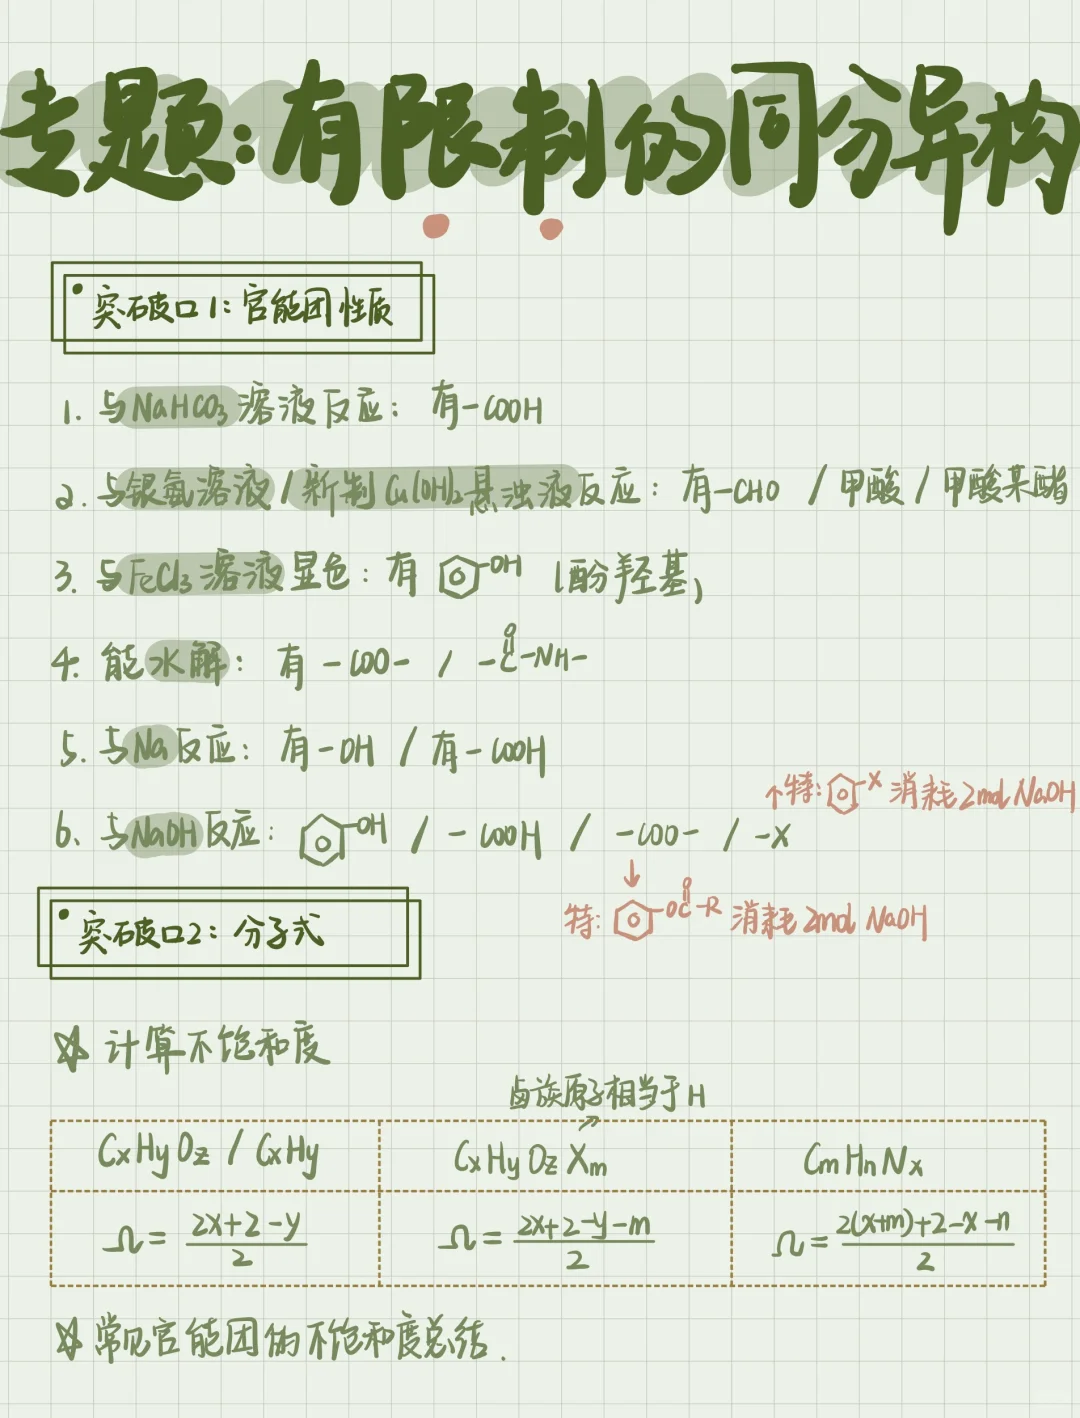 专题:有限制的同分异构
突破口1:官能团性质
1. 与NaHCO₃溶液反应: 有-COOH
2. 与银氨溶液/新制Cu(OH)₂悬浊液反应: 有-CHO / 甲酸 / 甲酸某酯
3. 与FeCl₃溶液显色: 有 -OH (酚羟基)
4. 能水解: 有 -COO- / -C(=O)-NH-
5. 与Na反应: 有-OH / 有-COOH
特: -X 消耗2mol NaOH
6. 与NaOH反应: -OH / -COOH / -COO- / -X
特: -OC(=O)-R 消耗2mol NaOH
突破口2:分子式
☆ 计算不饱和度
卤族原子相当于H
CxHyOz / CxHy CxHyOzXm CmHnNx
Ω= (2x+2-y)/2 Ω= (2x+2-y-m)/2 Ω= (2(x+m)+2-x-n)/2
☆ 常见官能团的不饱和度总结.